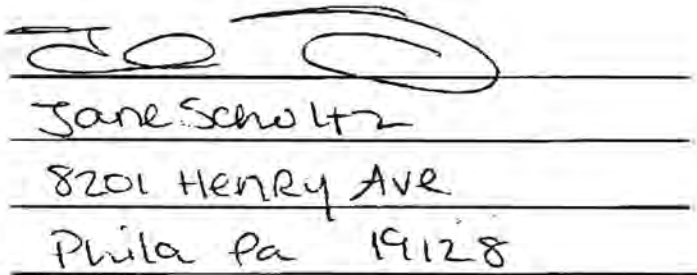 Jane Scholtz
8201 Henry Ave
Phila Pa 19128